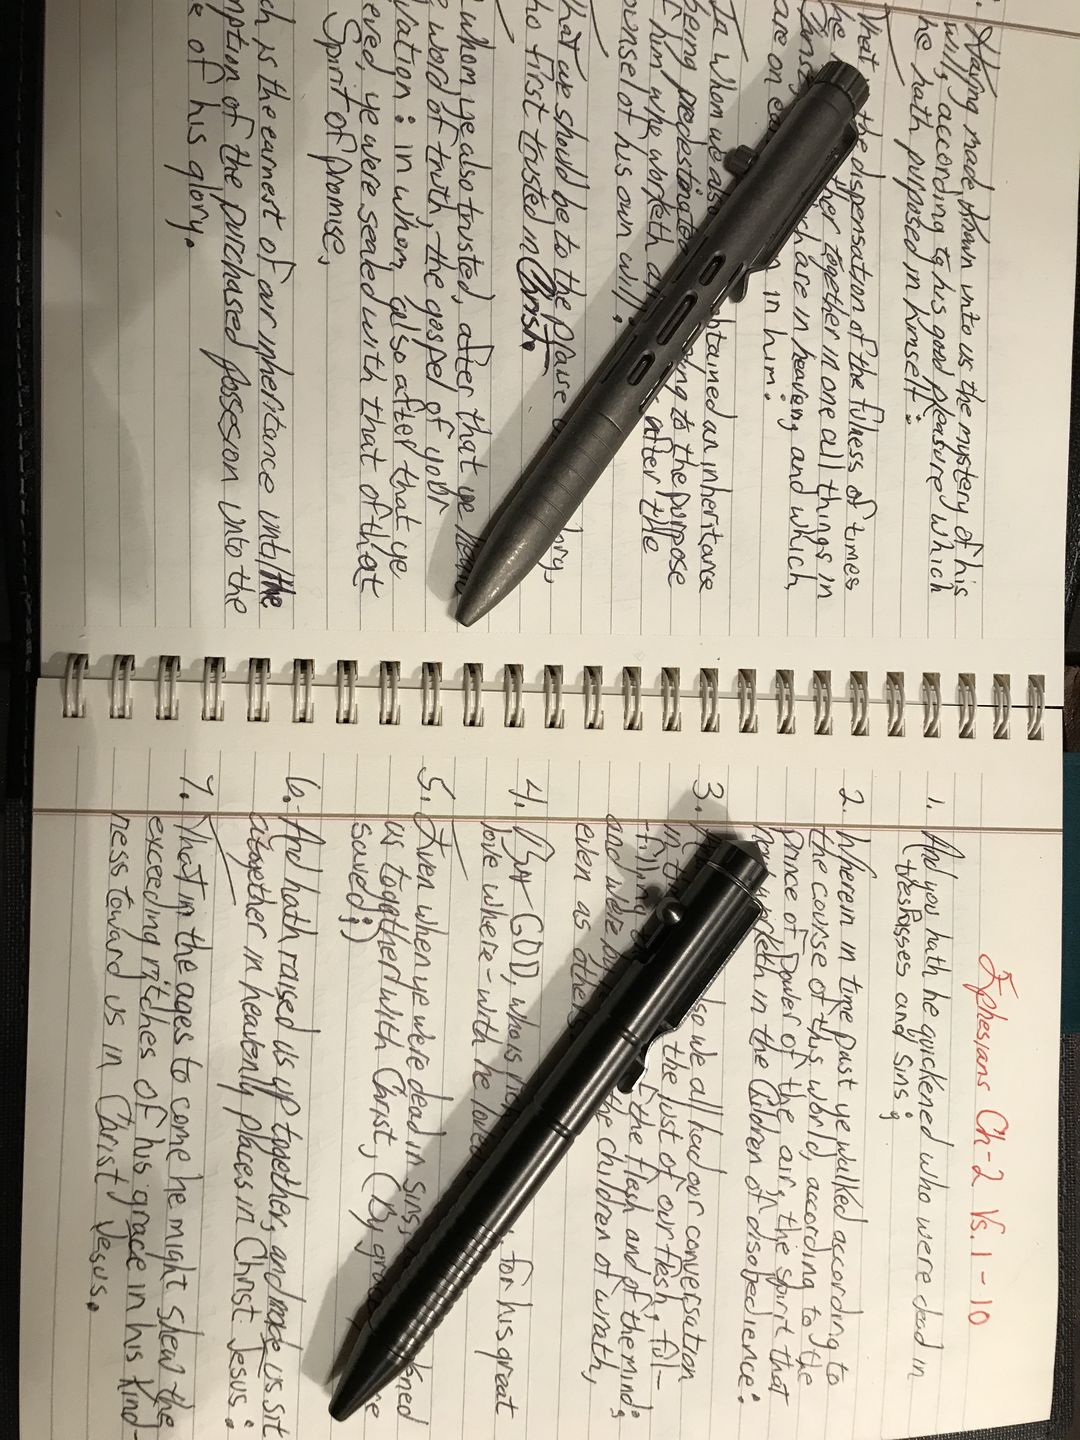 Having made known unto us the mystery of his
will, according to his good pleasure which
he hath purposed in himself:
That the dispensation of the fulness of times
he together in one all things in
Christ are in heaven, and which
are on in him:
In whom we also obtained an inheritance
being predestinated to the purpose
of him who worketh after the
counsel of his own will:
That we should be to the praise
who first trusted in Christ.
whom ye also trusted, after that ye heard
word of truth, the gospel of your
in whom also after that ye
ye were sealed with that of that
Spirit of promise,
is the earnest of our inheritance until the
of the purchased possesson unto the
of his glory.
Ephesians Ch-2 Vs. 1-10
1. And you hath he quickened who were dead in
trespasses and sins;
2. Wherein in time past ye walked according to
the course of this world, according to the
prince of Power of the air, the spirit that
now worketh in the Children of disobedience:
3. also we all had our conversation
in the lust of our flesh, ful-
filling the flesh and of the mind;
and were the children of wrath,
even as others
4. But GOD, who is rich for his great
love where-with he loved
5. Even when ye were dead in sins,
us together with Christ, (By grace
saved;)
6. And hath raised us up together, and made us sit
altogether in heavenly places in Christ Jesus:
7. That in the ages to come he might shew the
exceeding ritches of his grace in his Kind-
ness toward us in Christ Jesus.